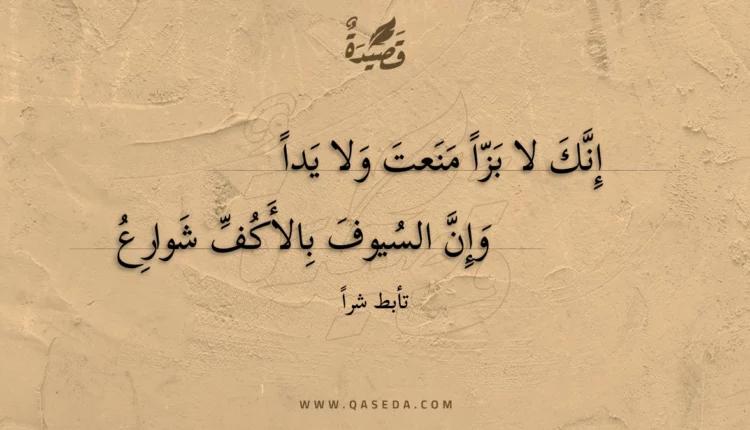 قَصِيدَةٌ
إِنَّكَ لا بَزّاً مَنَعتَ وَلا يَداً
وَإِنَّ السُيوفَ بِالأَكُفِّ شَوارِعُ
تأبط شراً
WWW.QASEDA.COM